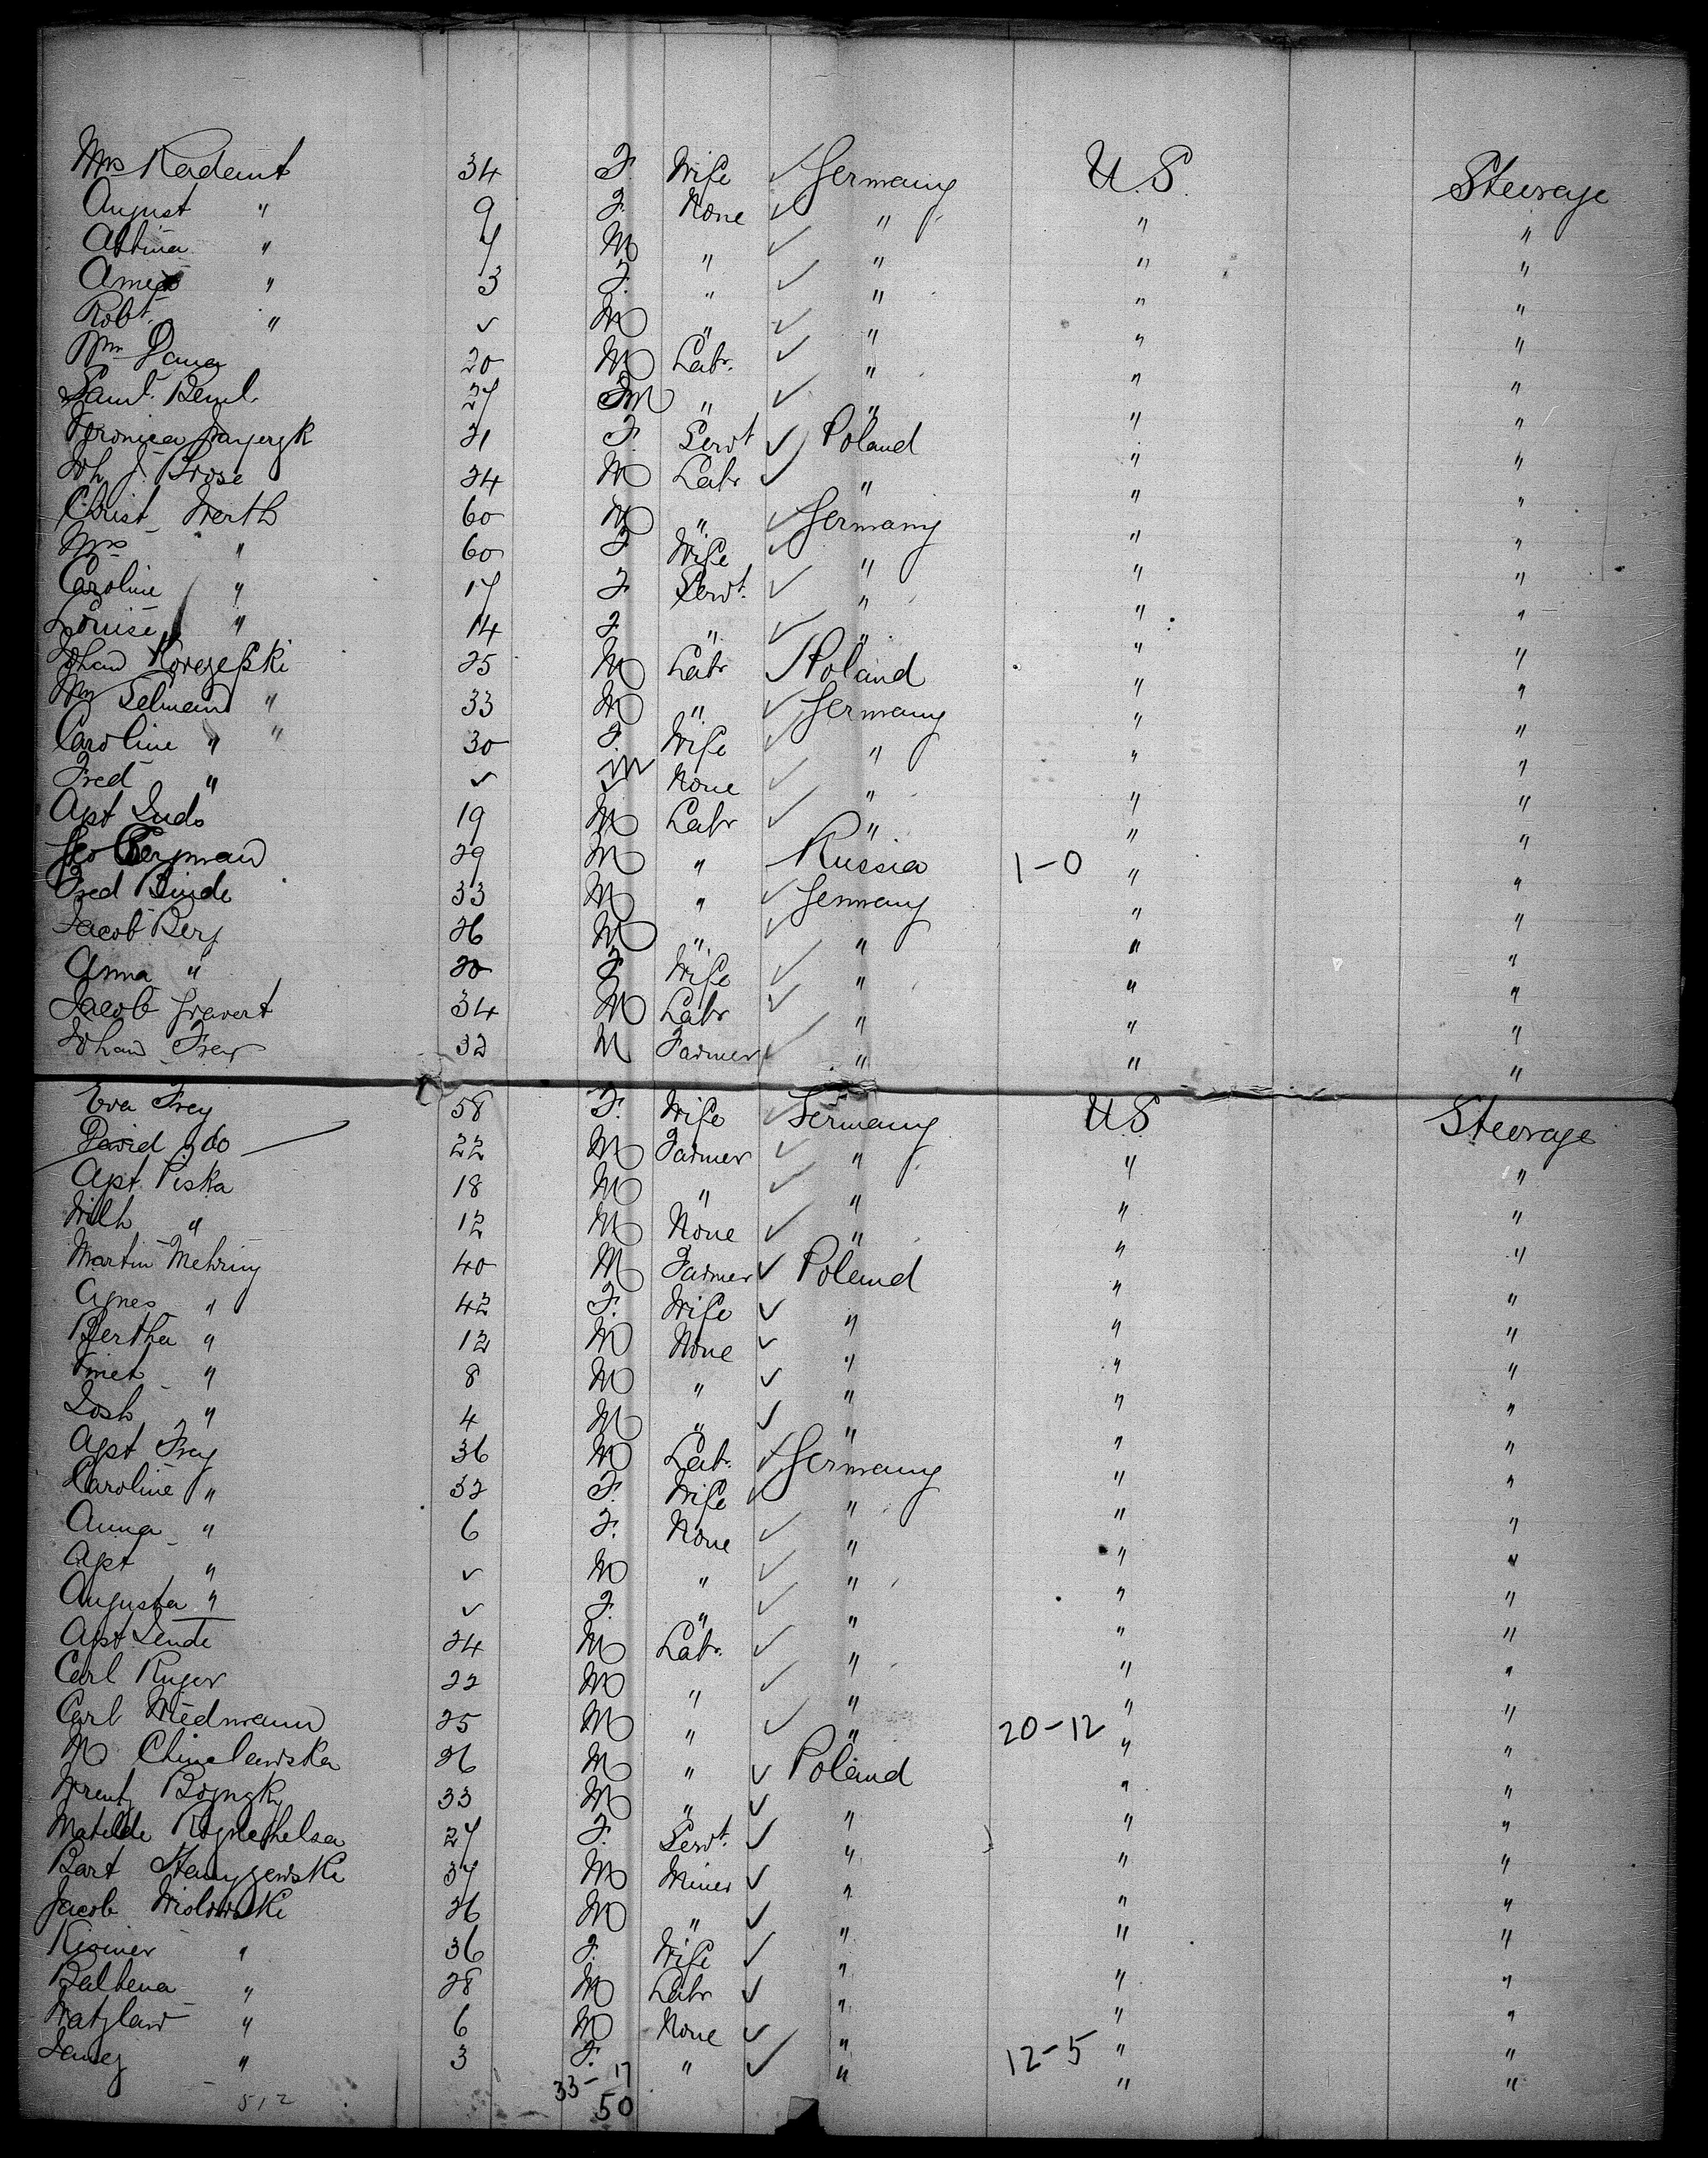 Mrs Rademt 34 F. Wife ✓ Germany U.S. Steerage
August " 9 F. None ✓ " " "
Attina " 7 M " ✓ " " "
" 3 F. " ✓ " " "
Robt. " ✓ M " ✓ " " "
Wm 20 M Labr. ✓ " " "
Saml. 27 M " ✓ " " "
Veronica 21 F. Servt ✓ Poland " "
Joh J. Brose 24 M Labr ✓ " " "
Christ Werth 60 M " ✓ Germany " "
Mrs " 60 F Wife ✓ " " "
Caroline " 17 F Servt. ✓ " " "
Louise " 14 F " ✓ " " "
Johan 25 M Labr ✓ Poland " "
Wm Selman " 33 M " ✓ Germany " "
Caroline " " 30 F. Wife ✓ " " "
Fred " ✓ M None ✓ " " "
Agst Luds 19 M Labr ✓ " " "
Geo Bergman 29 M " Russia 1-0 " "
Fred Binde 33 M " ✓ Germany " "
Jacob Berg 26 M " ✓ " " "
Anna " 20 F Wife ✓ " " "
Jacob Gravert 34 M Labr ✓ " " "
Johan Frey 32 M Farmer ✓ " " "
Eva Frey 58 F. Wife ✓ Germany U.S Steerage
David do 22 M Farmer ✓ " " "
Agst Piska 18 M " ✓ " " "
Wilh " 12 M None ✓ " " "
Martin Mehring 40 M Farmer ✓ Poland " "
Agnes " 42 F. Wife ✓ " " "
Bertha " 12 M None ✓ " " "
" 8 M " ✓ " " "
Josh " 4 M " ✓ " " "
Agst Frey 36 M Labr. ✓ Germany " "
Caroline " 32 F. Wife ✓ " " "
Anna " 6 F. None ✓ " " "
Agst " ✓ M " ✓ " " "
Augusta " ✓ F. " ✓ " " "
Agst Lende 24 M Labr. ✓ " " "
Carl Ruger 22 M " ✓ " " "
Carl Wiedmann 25 M " ✓ " 20-12 " "
M. Chinalewska 26 M " ✓ Poland " "
33 M " ✓ " " "
Matilde 27 F. Servt. ✓ " " "
Bart 37 M Miner ✓ " " "
Jacob Wislowski 26 M " ✓ " " "
" 36 F. Wife ✓ " " "
Balbena " 28 M Labr ✓ " " "
Watzlaw " 6 M None ✓ " " "
" 3 F. " ✓ " 12-5 " "
33-17
512 50